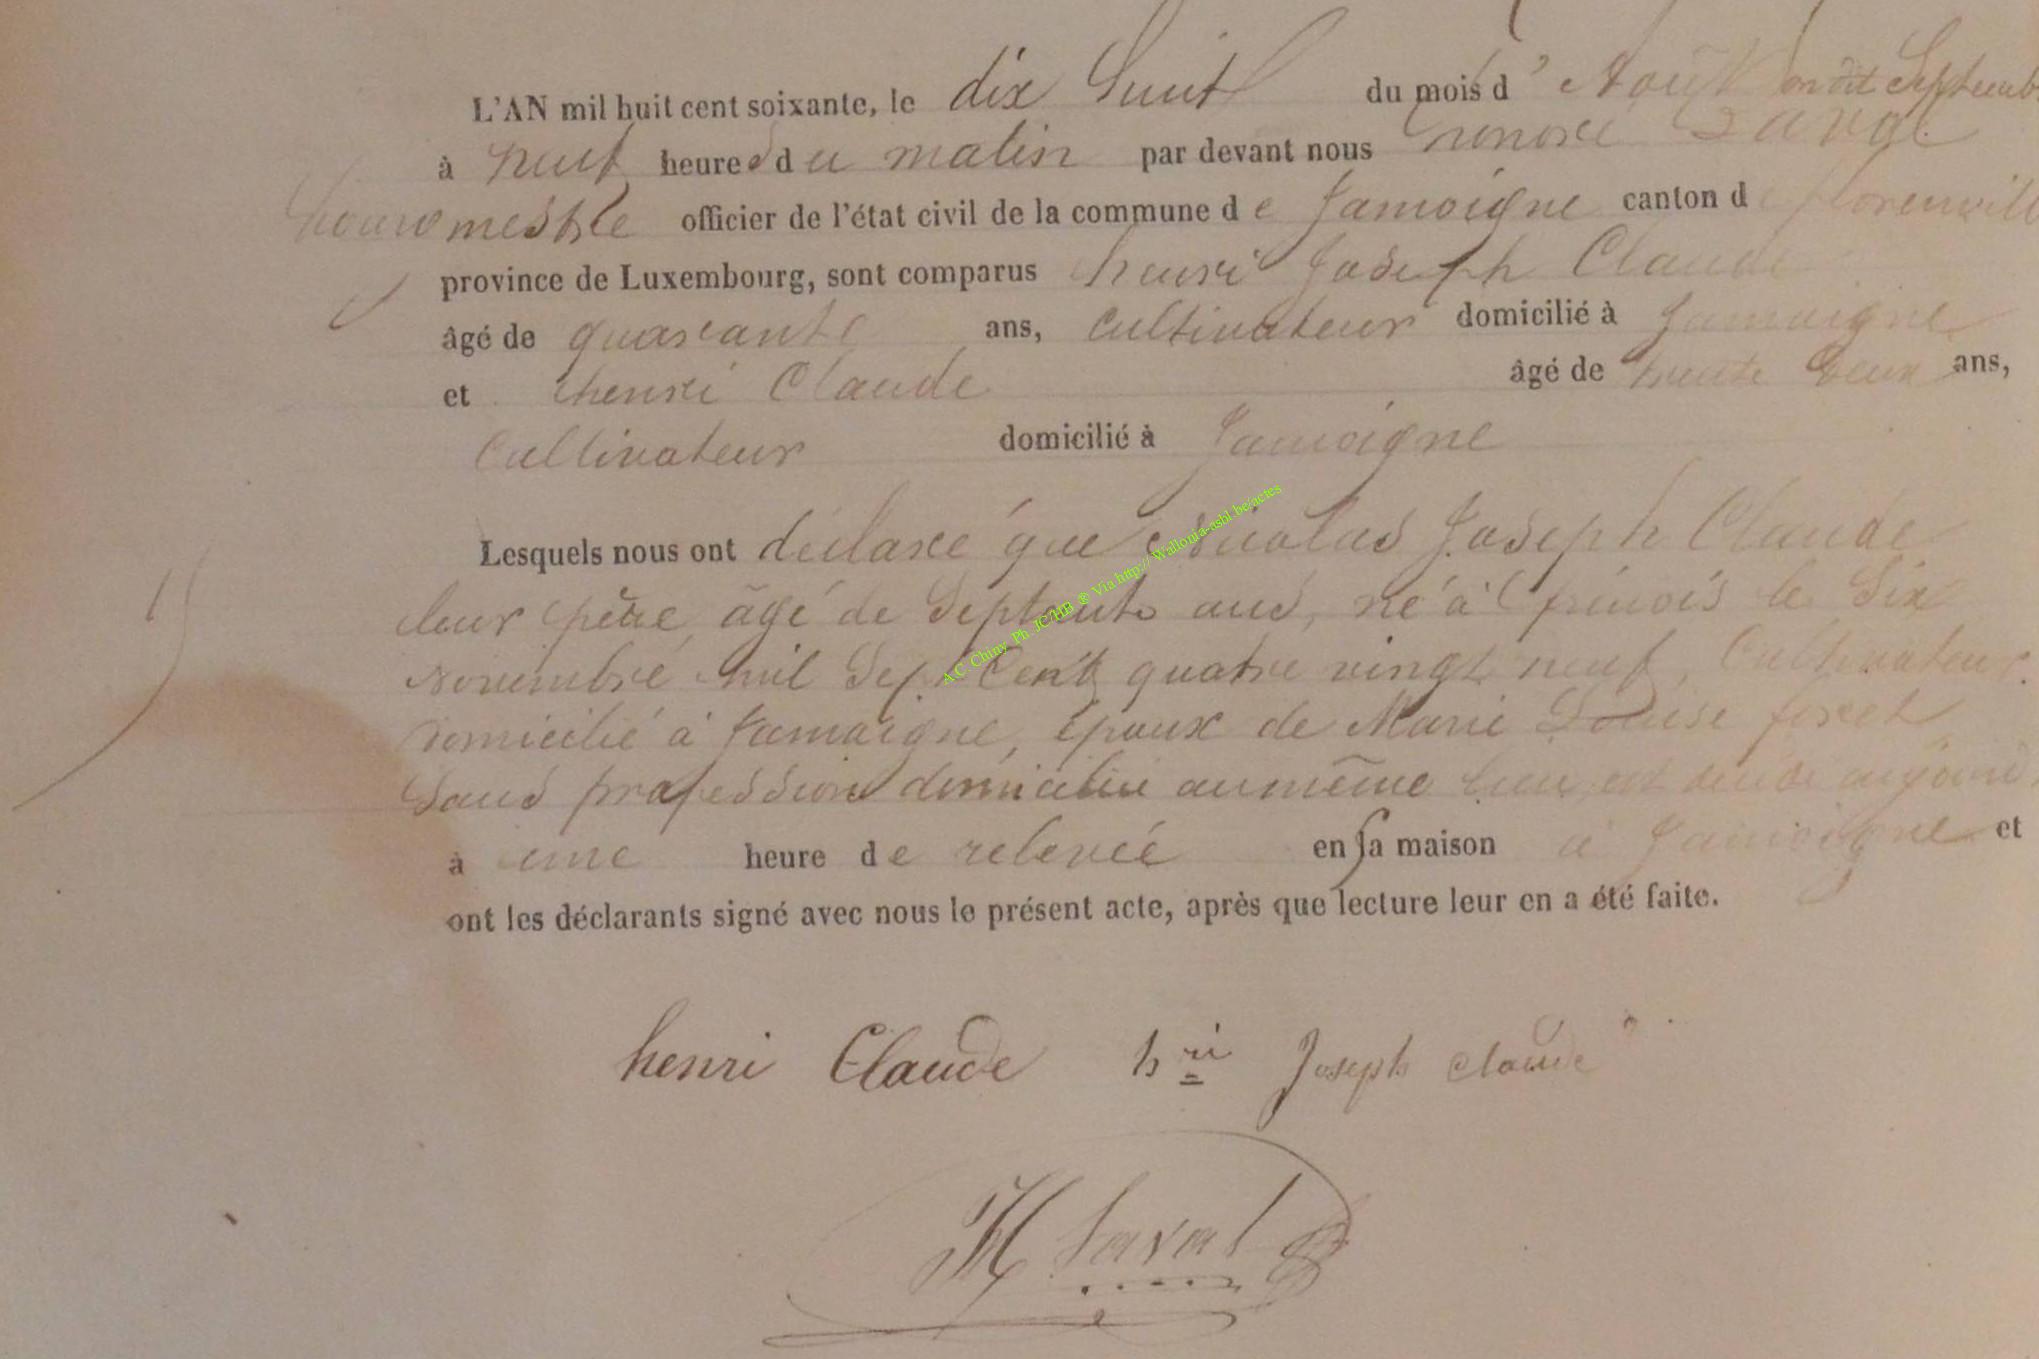 L'AN mil huit cent soixante, le dix huit du mois d' Août on dit Septemb
à neuf heures du matin par devant nous honoré Laval
bourgmestre officier de l'état civil de la commune de Jamoigne canton de florenvill
province de Luxembourg, sont comparus henri Joseph Claude
âgé de quarante ans, cultivateur domicilié à Jamoigne
et henri Claude âgé de trente deux ans,
Cultivateur domicilié à Jamoigne
Lesquels nous ont déclaré que Nicolas Joseph Claude
leur père, âgé de Septante ans, né à frénois le Six
Novembre mil Sept Cent quatre vingt neuf, Cultivateur
domicilié à Jamoigne, époux de Marie Louise foret
Sans profession domicilié au même lieu, est décédé
à une heure de relevée en sa maison à Jamoigne et
ont les déclarants signé avec nous le présent acte, après que lecture leur en a été faite.
henri Claude hri Joseph Claude
H Laval
A.C. Chiny Ph. JC/HB ® Via http://Wallonia-asbl.be/actes